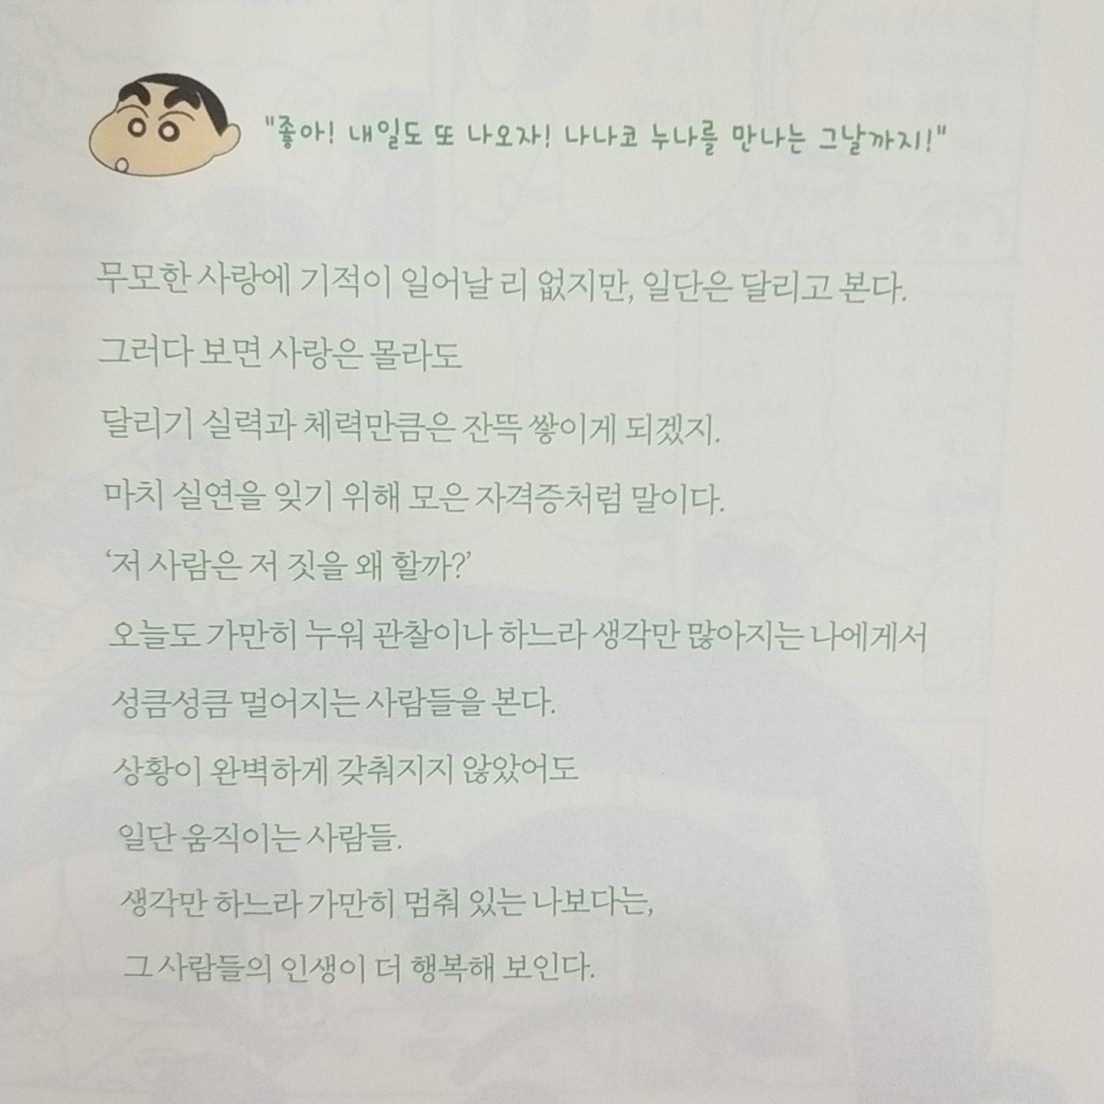 "좋아! 내일도 또 나오자! 나나코 누나를 만나는 그날까지!"
무모한 사랑에 기적이 일어날 리 없지만, 일단은 달리고 본다.
그러다 보면 사랑은 몰라도
달리기 실력과 체력만큼은 잔뜩 쌓이게 되겠지.
마치 실연을 잊기 위해 모은 자격증처럼 말이다.
‘저 사람은 저 짓을 왜 할까?’
오늘도 가만히 누워 관찰이나 하느라 생각만 많아지는 나에게서
성큼성큼 멀어지는 사람들을 본다.
상황이 완벽하게 갖춰지지 않았어도
일단 움직이는 사람들.
생각만 하느라 가만히 멈춰 있는 나보다는,
그 사람들의 인생이 더 행복해 보인다.